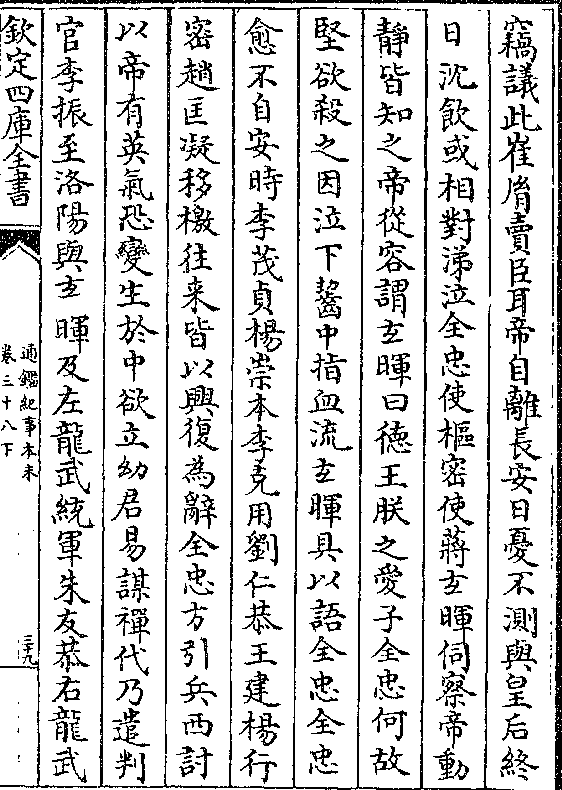 竊議此崔胤賣臣耳帝自離長安日憂不測與皇后終
日沈飲或相對涕泣全忠使樞密使蔣玄暉伺察帝動
靜皆知之帝從容謂玄暉曰德王朕之愛子全忠何故
堅欲殺之因泣下齧中指血流玄暉具以語全忠全忠
愈不自安時李茂貞楊崇本李克用劉仁恭王建楊行
密趙匡凝移檄往来皆以興復為辭全忠方引兵西討
以帝有英氣恐變生於中欲立幼君易謀禪代乃遣判
官李振至洛陽與玄暉及左龍武統軍朱友恭右龍武
欽定四庫全書
通鑑紀事本末
卷三十八下
三十九